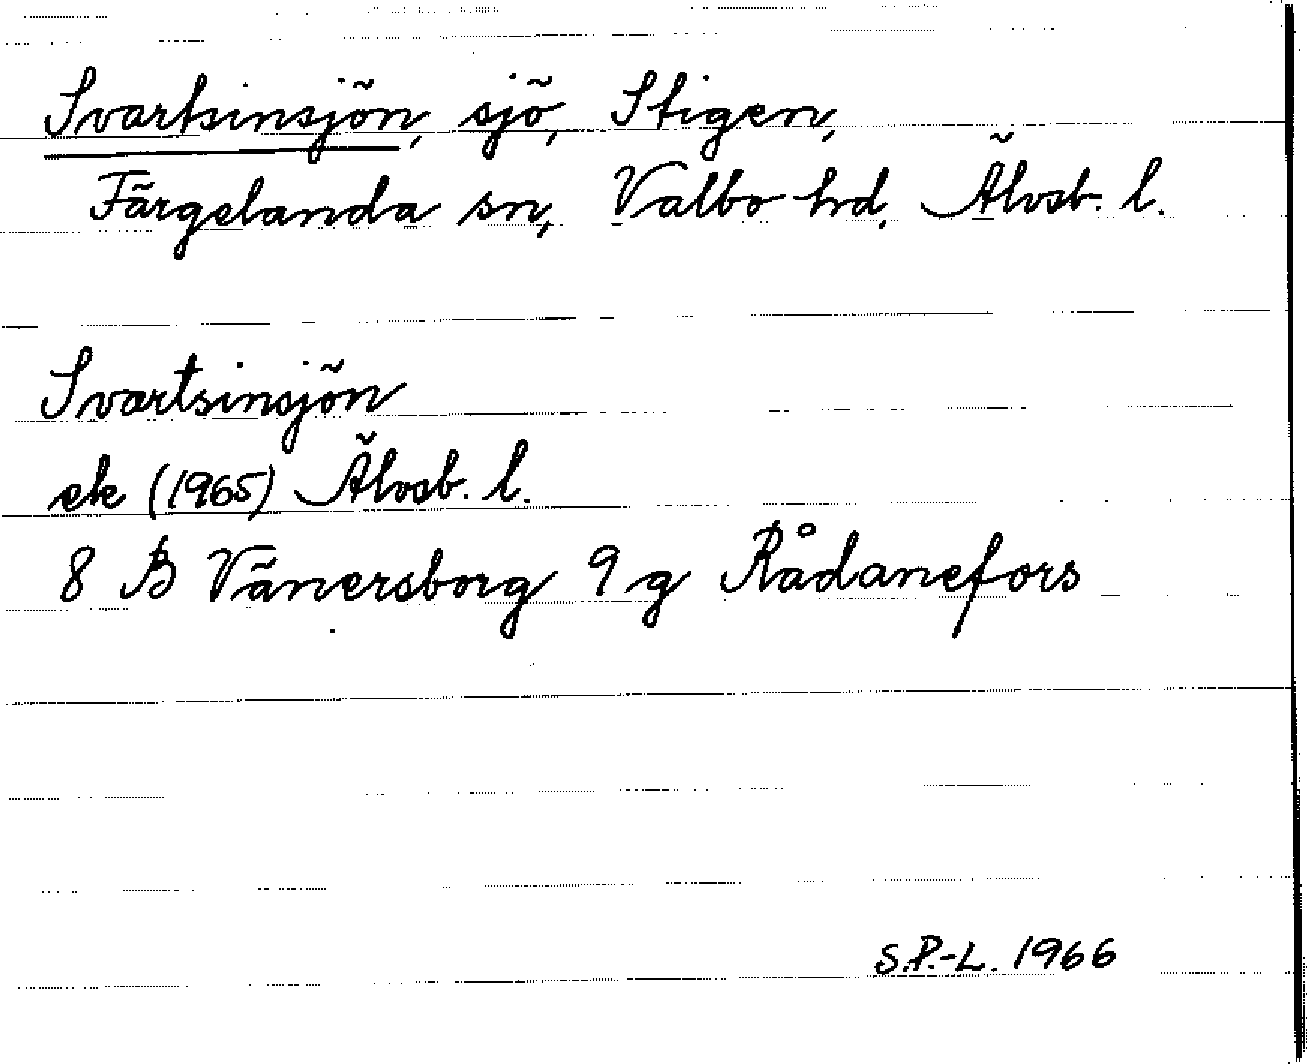 Svartsinsjön, sjö, Stigen,
Färgelanda sn, Valbo hd, Älvsb. l.
Svartsinsjön
ek (1965) Älvsb. l.
8 B Vänersborg 9 g Rådanefors
S.P.-L. 1966